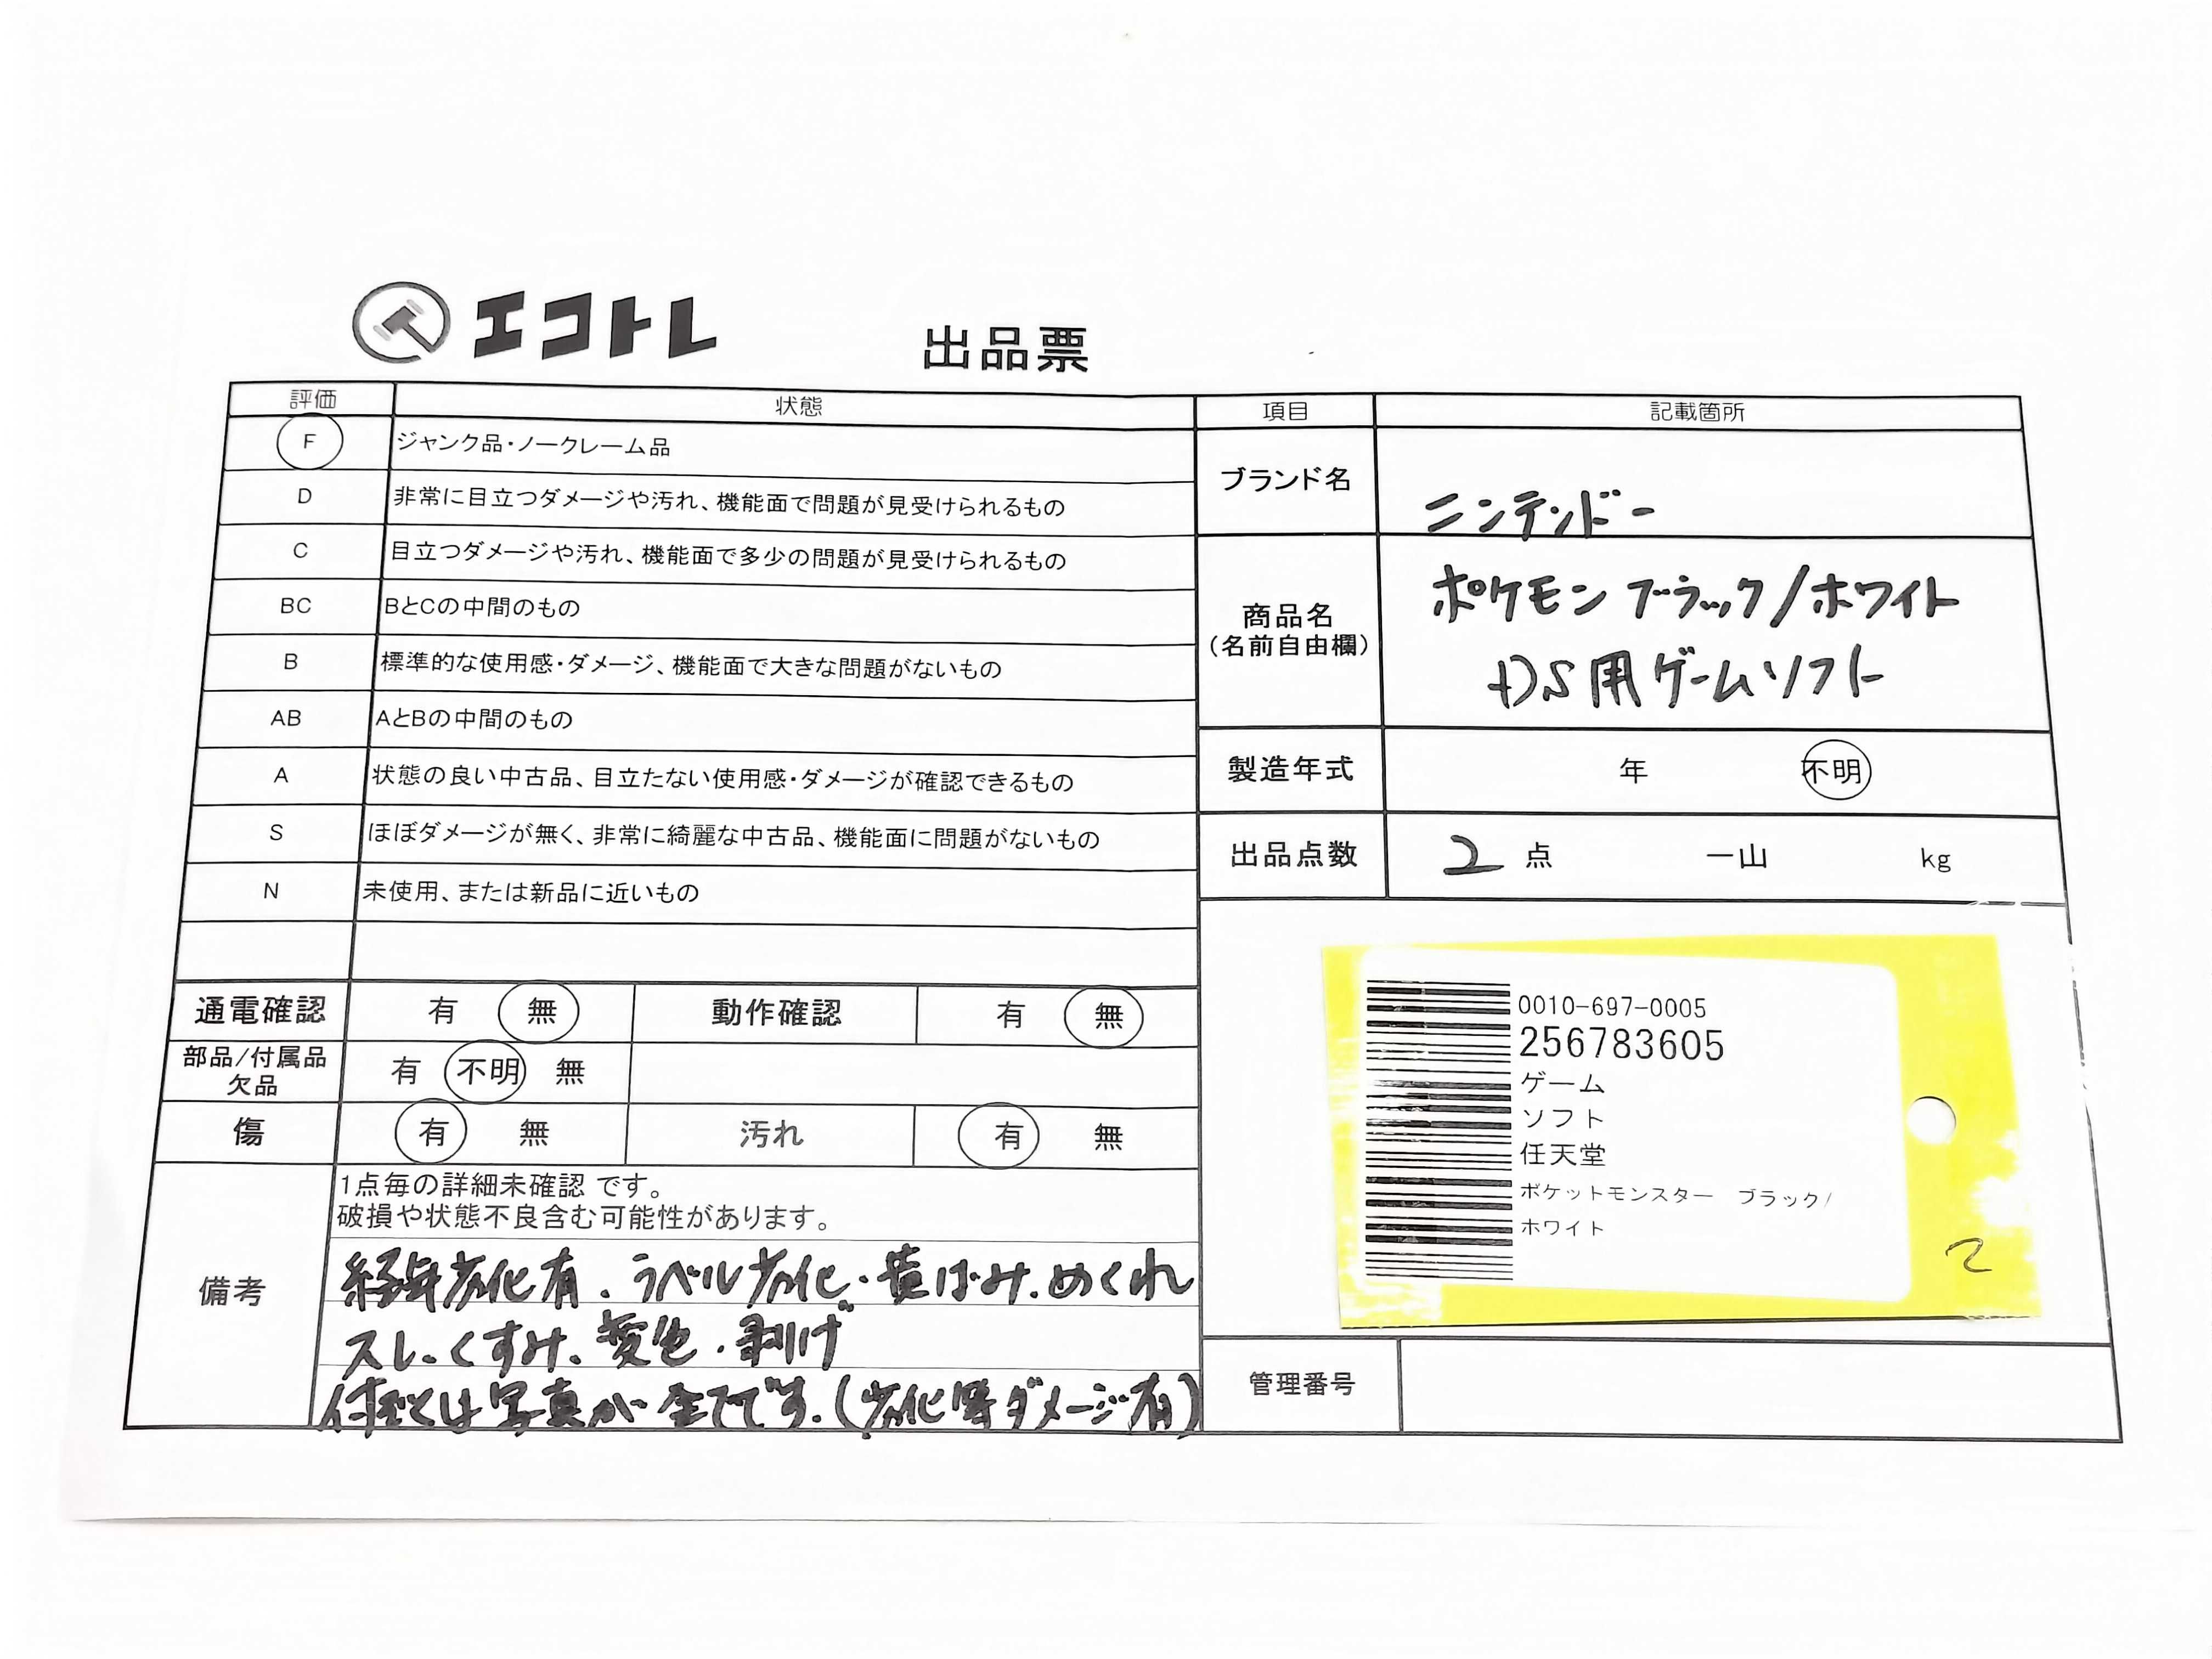 エコトレ
出品票
評価 状態
F ジャンク品・ノークレーム品
D 非常に目立つダメージや汚れ、機能面で問題が見受けられるもの
C 目立つダメージや汚れ、機能面で多少の問題が見受けられるもの
BC BとCの中間のもの
B 標準的な使用感・ダメージ、機能面で大きな問題がないもの
AB AとBの中間のもの
A 状態の良い中古品、目立たない使用感・ダメージが確認できるもの
S ほぼダメージが無く、非常に綺麗な中古品、機能面に問題がないもの
N 未使用、または新品に近いもの
通電確認 有 無 動作確認 有 無
部品/付属品
欠品
有 不明 無
傷 有 無 汚れ 有 無
備考
1点毎の詳細未確認 です。
破損や状態不良含む可能性があります。
経年劣化有、ラベル劣化・黄ばみ、めくれ
スレ、くすみ、変色、剥げ
付属は写真が全てです。(劣化等ダメージ有)
項目 記載箇所
ブランド名 ニンテンドー
商品名
(名前自由欄)
ポケモン ブラック/ホワイト
DS用ゲームソフト
製造年式 年 不明
出品点数 2 点 一山 kg
0010-697-0005
256783605
ゲーム
ソフト
任天堂
ポケットモンスター ブラック/
ホワイト
2
管理番号